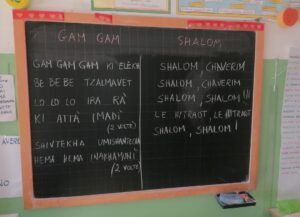 GAM GAM
GAM GAM GAM KI ELECH
BE BE BE TZALMAVET
LO LO LO IRA RA
KI ATTA IMADI
(2 VOLTE)
SHIVTEKHA UMISHANTECHA
HEMA HEMA INACHAMUNI
(2 VOLTE)
SHALOM
SHALOM, CHAVERIM
SHALOM, CHAVERIM
SHALOM, SHALOM !!!
LE HITRAOT, LE HITRAOT
SHALOM, SHALOM !